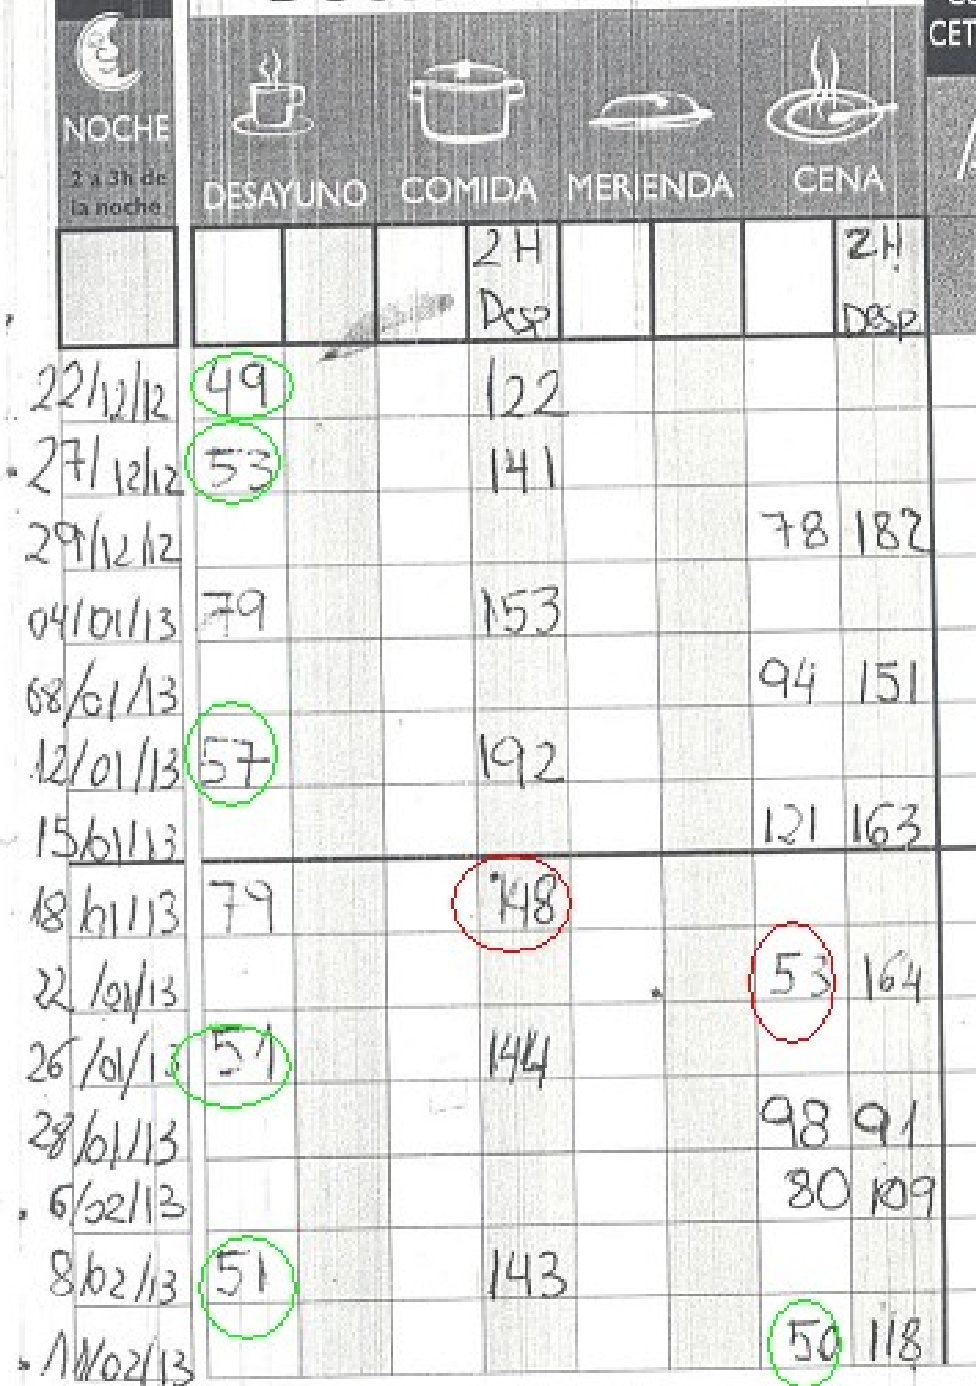 CET
NOCHE
2 a 3h de
la noche
DESAYUNO COMIDA MERIENDA CENA
2H 2H
Desp Desp
22/12/12 49 122
27/12/12 53 141
29/12/12 78 182
04/01/13 79 153
08/01/13 94 151
12/01/13 57 192
15/01/13 121 163
18/01/13 79 148
22/01/13 53 164
26/01/13 51 144
28/01/13 98 91
6/02/13 80 109
8/02/13 51 143
11/02/13 50 118